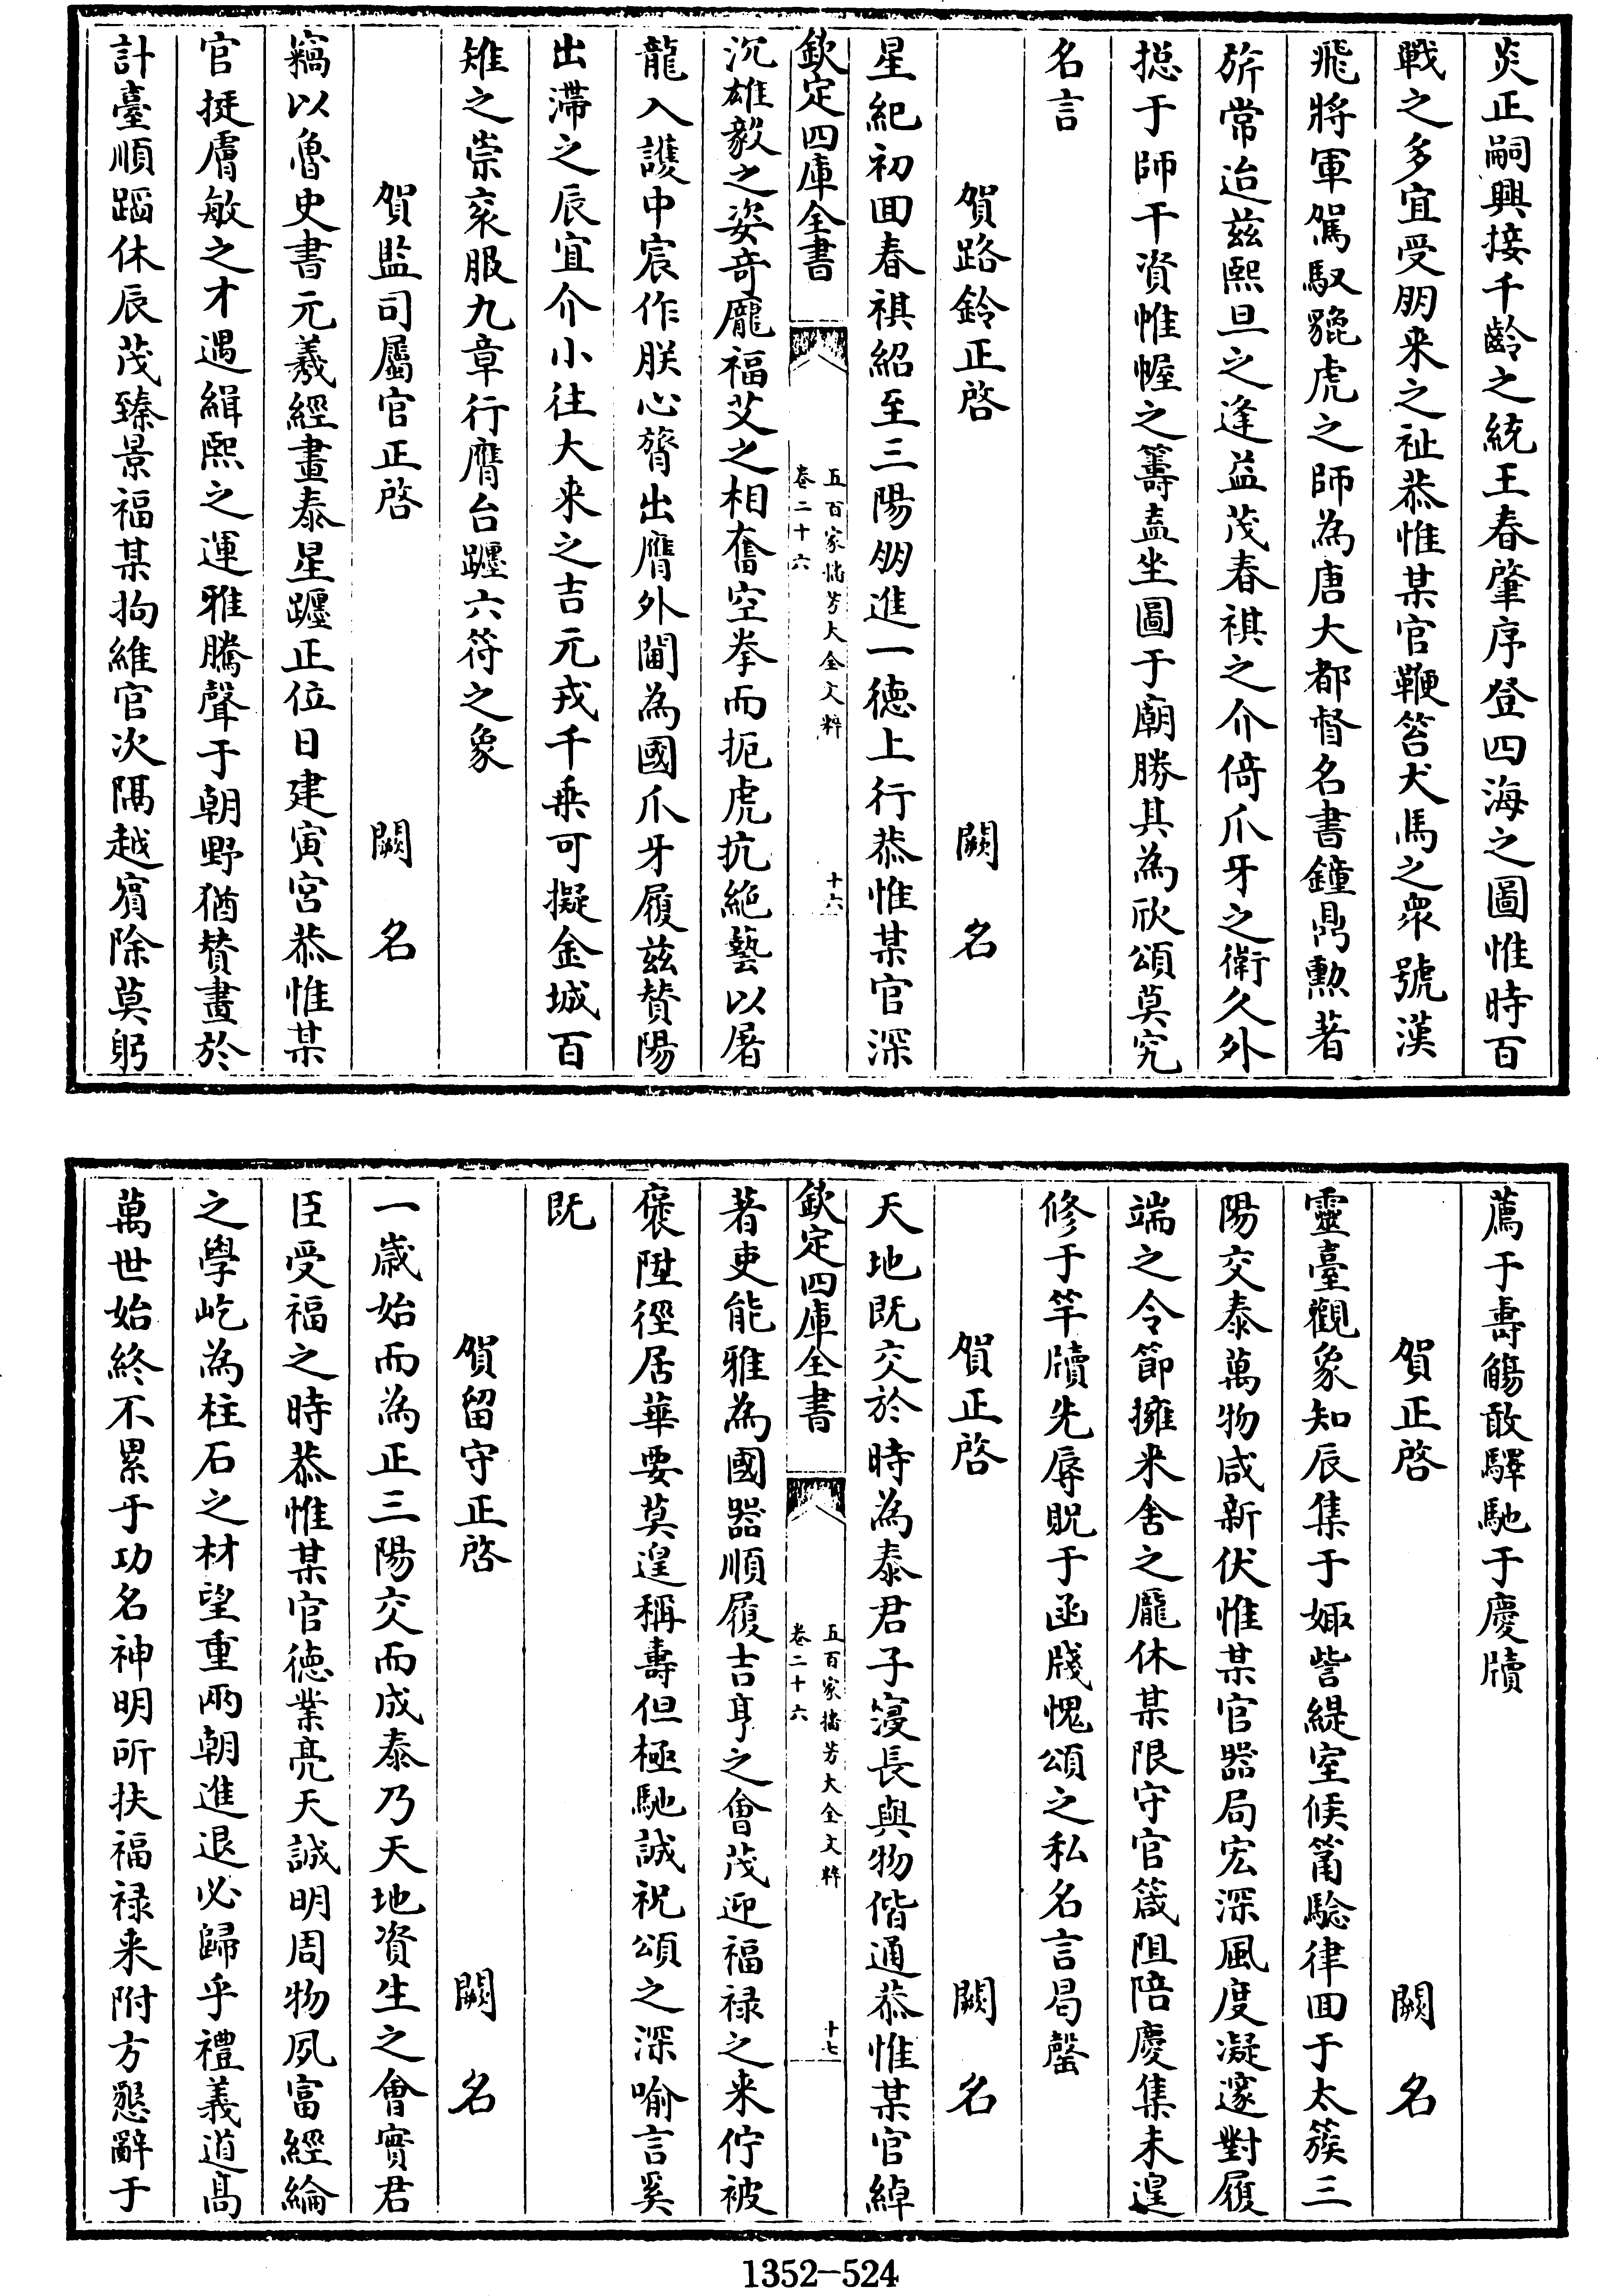 炎正嗣興接千齡之統王春肇序登四海之圖惟時百
戰之多宜受朋来之祉恭惟某官鞭笞犬馬之衆號漢
飛將軍駕馭貔虎之師為唐大都督名書鐘鼎勲著
旂常迨兹熙旦之逢益茂春祺之介倚爪牙之衛久外
揔于師干資惟幄之籌盍坐圖于廟勝其為欣頌莫究
名言
賀路鈐正啓 闕名
星紀初回春祺紹至三陽朋進一德上行恭惟某官深
欽定四庫全書
五百家播芳大全文粹
卷二十六
十六
沉雄毅之姿奇龐福艾之相奮空拳而扼虎抗絶藝以屠
龍入護中宸作朕心膂出膺外閫為國爪牙履兹賛陽
出滯之辰宜介小往大来之吉元戎千乗可擬金城百
雉之崇衮服九章行膺台躔六符之象
賀監司屬官正啓 闕名
竊以魯史書元羲經畫泰星躔正位日建寅宫恭惟某
官挺膚敏之才遇緝熙之運雅騰聲于朝野猶賛畫於
計臺順蹈休辰茂臻景福某拘維官次隔越賔除莫躬
薦于夀觴敢驛馳于慶牘
賀正啓 闕名
靈臺觀象知辰集于娵訾緹室候筩驗律回于太簇三
陽交泰萬物咸新伏惟某官器局宏深風度凝邃對履
端之令節擁来舍之龎休某限守官箴阻陪慶集未遑
修于竿牘先辱貺于函牋愧頌之私名言曷罄
賀正啓 闕名
天地既交於時為泰君子寖長與物偕通恭惟某官綽
欽定四庫全書
五百家播芳大全文粹
卷二十六
十七
著吏能雅為國器順履吉亨之會茂迎福禄之来佇被
褒陞徑居華要莫遑稱夀但極馳誠祝頌之深喻言奚
既
賀留守正啓 闕名
一歲始而為正三陽交而成泰乃天地資生之會實君
臣受福之時恭惟某官德業亮天誠明周物夙富經綸
之學屹為柱石之材望重兩朝進退必歸乎禮義道髙
萬世始終不累于功名神明所扶福禄来附方懇辭于
1352-524